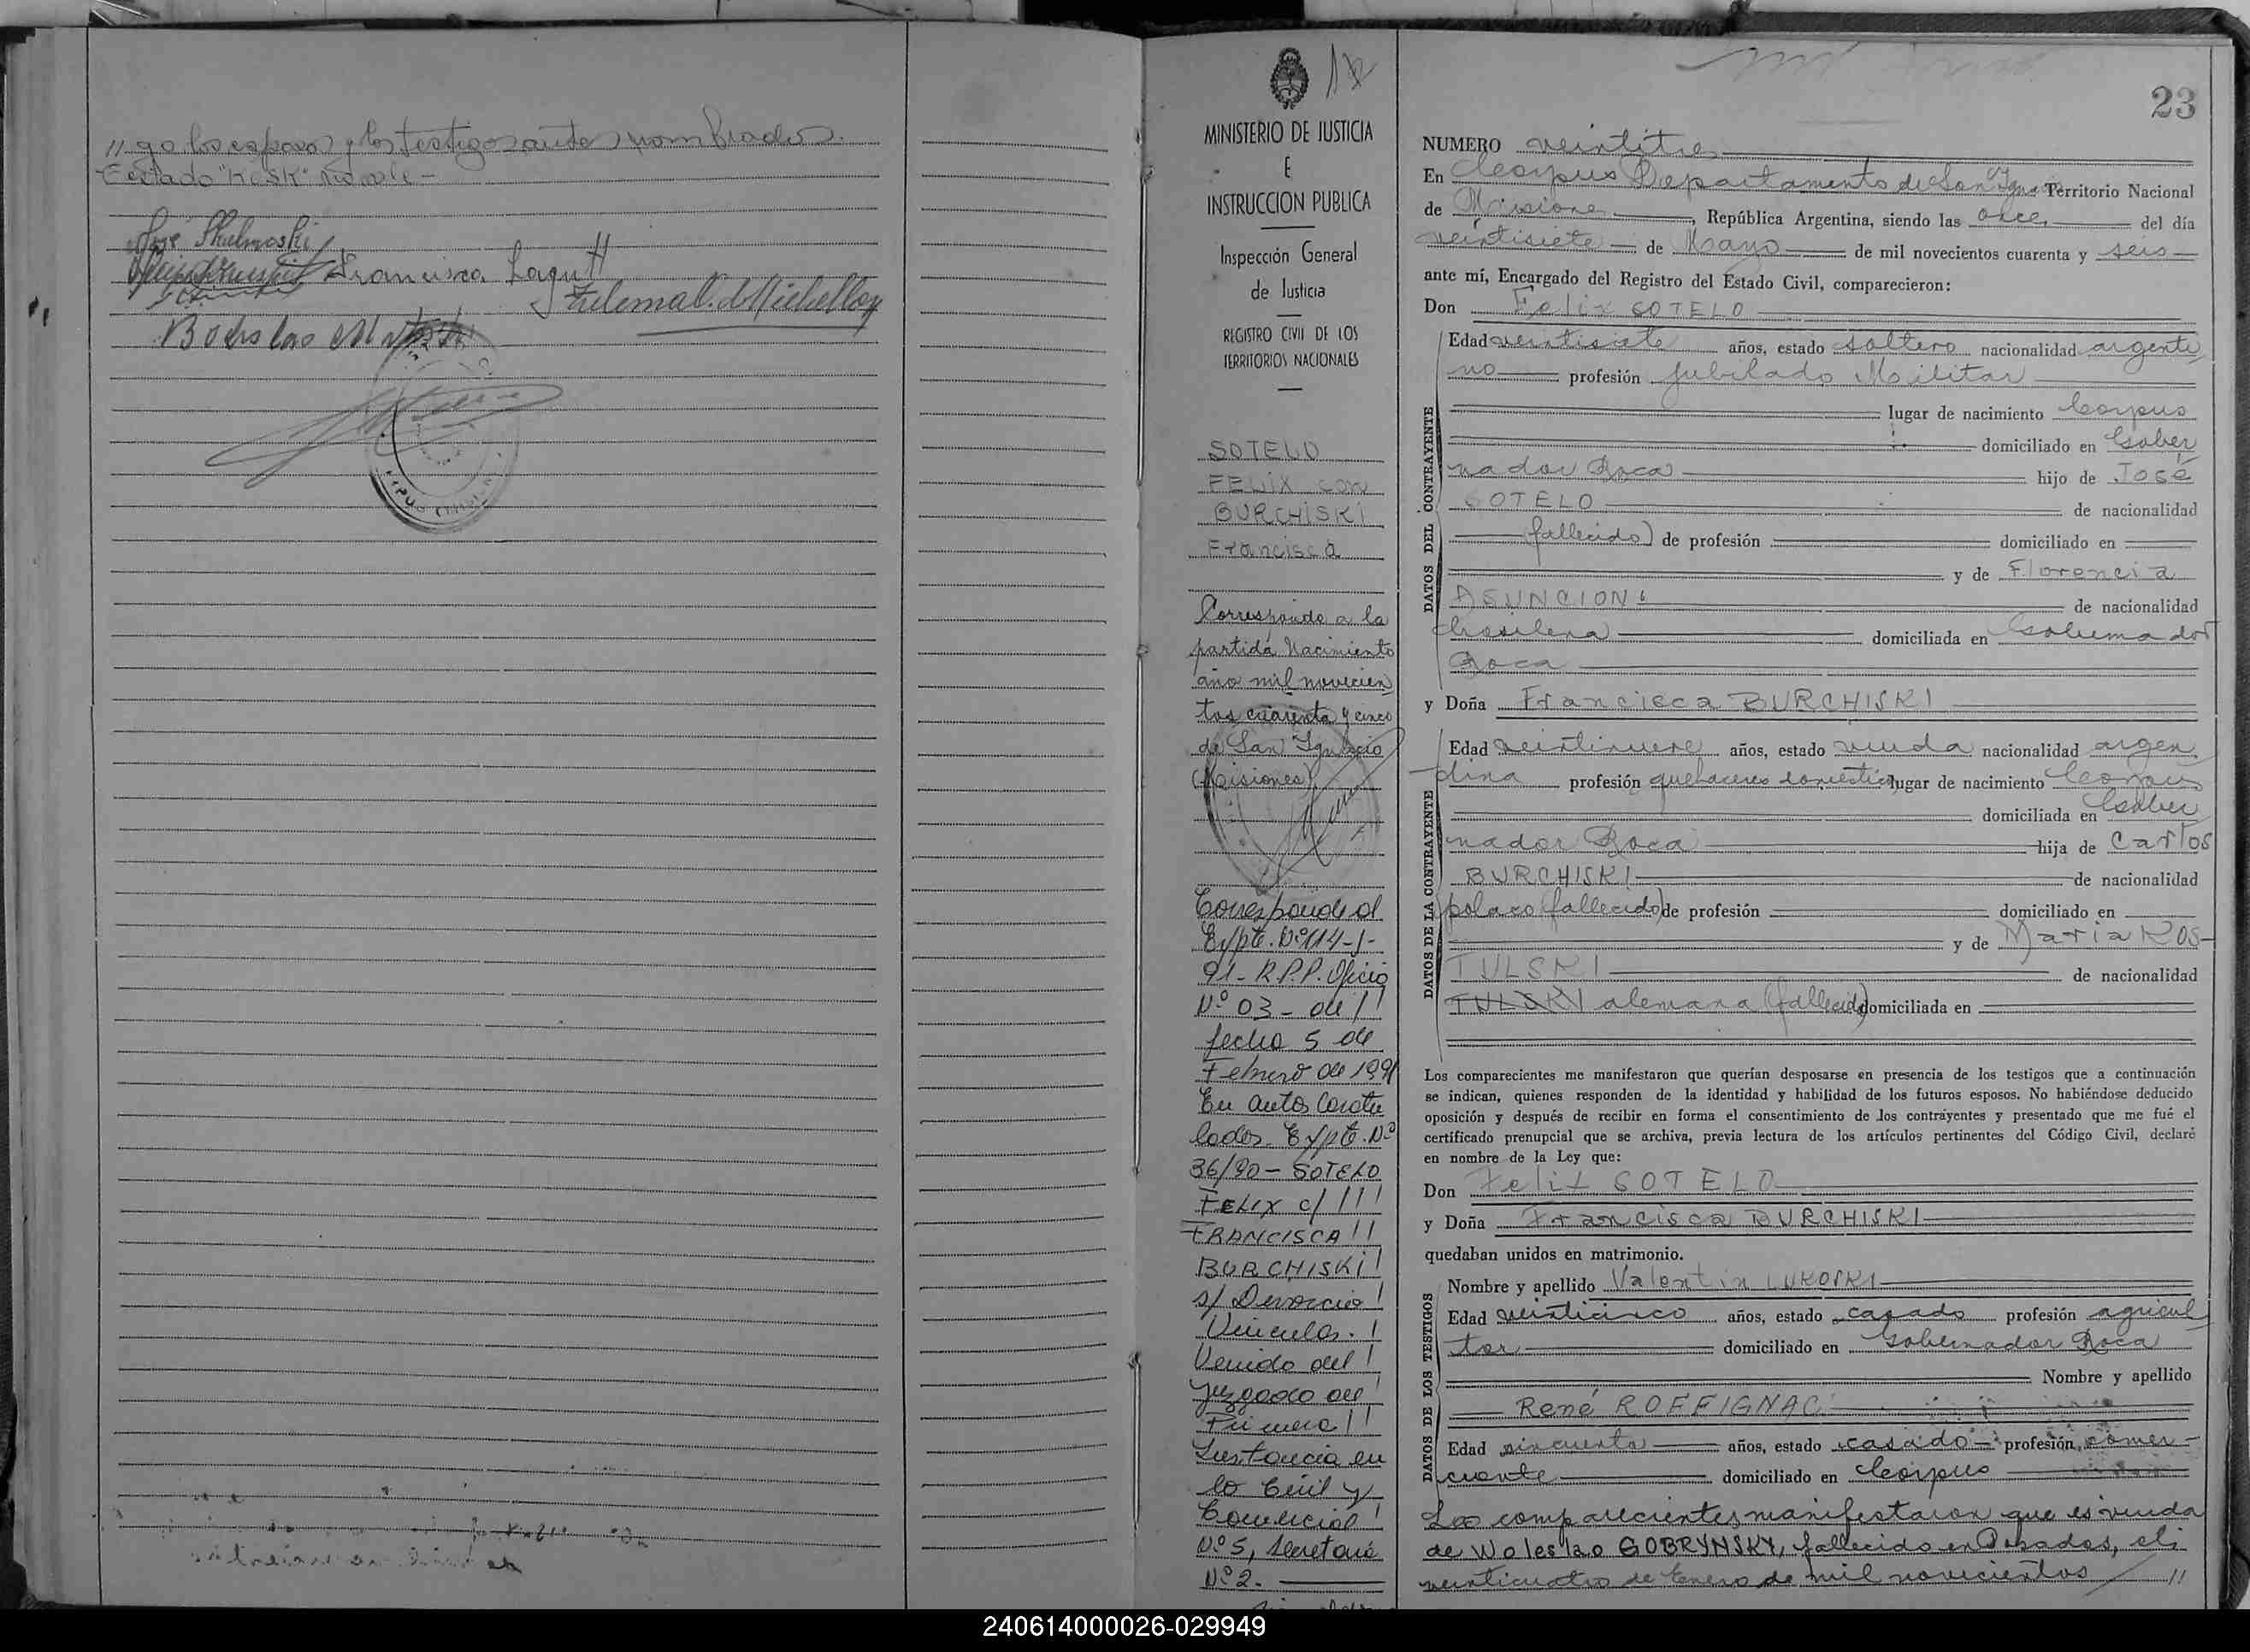 // go los esposos y los testigos antes nombrados.
Testado
José
Francisca Lagutt
MINISTERIO DE JUSTICIA
E
INSTRUCCION PUBLICA
Inspección General
de Justicia
REGISTRO CIVIL DE LOS
TERRITORIOS NACIONALES
SOTELO
FELIX con
BURCHISKI
Francisca
Corresponde a la
partida Nacimiento
año mil novecien
tos cuarenta y cinco
de San Ignacio
(Misiones)
Corresponde al
Expte. Nº 114-J-
91- R.P.P. Oficio
Nº 03 - de //
fecha 5 de
Febrero de 1991
En autos Caratu
lados Expte. Nº
36/90 - SOTELO
FELIX c/ ///
FRANCISCA //
BURCHISKI /
s/ Divorcio /
Vincular. /
Venido del /
Juzgado de /
Primera //
Instancia en
lo Civil y
Comercial /
Nº 5, Secretaría
Nº 2.
23
NUMERO veintitres
En Corpus Departamento de San Igna Territorio Nacional
de Misiones, República Argentina, siendo las once del día
veintisiete de Mayo de mil novecientos cuarenta y seis
ante mí, Encargado del Registro del Estado Civil, comparecieron:
Don Felix SOTELO
DATOS DEL CONTRAYENTE
Edad veintisiete años, estado soltero nacionalidad argenti
no profesión jubilado Militar
lugar de nacimiento Corpus
domiciliado en Gober
nador Roca hijo de José
SOTELO de nacionalidad
(fallecido) de profesión domiciliado en
y de Florencia
ASUNCION de nacionalidad
brasilera domiciliada en Gobernador
Roca
y Doña Francisca BURCHISKI
DATOS DE LA CONTRAYENTE
Edad veintinueve años, estado viuda nacionalidad argen
tina profesión quehaceres domésticos lugar de nacimiento Corpus
domiciliada en Gober
nador Roca hija de Carlos
BURCHISKI de nacionalidad
polaco (fallecido) de profesión domiciliado en
y de Maria KOS-
TULSKI de nacionalidad
TULSKI alemana (fallecida) domiciliada en
Los comparecientes me manifestaron que querían desposarse en presencia de los testigos que a continuación
se indican, quienes responden de la identidad y habilidad de los futuros esposos. No habiéndose deducido
oposición y después de recibir en forma el consentimiento de los contrayentes y presentado que me fué el
certificado prenupcial que se archiva, previa lectura de los artículos pertinentes del Código Civil, declaré
en nombre de la Ley que:
Don Felix SOTELO
y Doña Francisca BURCHISKI
quedaban unidos en matrimonio.
DATOS DE LOS TESTIGOS
Nombre y apellido Valentin LUKOSKI
Edad veinticinco años, estado casado profesión agricul
tor domiciliado en Gobernador Roca
Nombre y apellido
René ROFFIGNAC
Edad cincuenta años, estado casado profesión comer-
ciante domiciliado en Corpus
Los comparecientes manifestaron que es viuda
de Woleslao GOBRYNSKY, fallecido en Posadas, el
veinticuatro de Enero de mil novecientos //
240614000026-029949